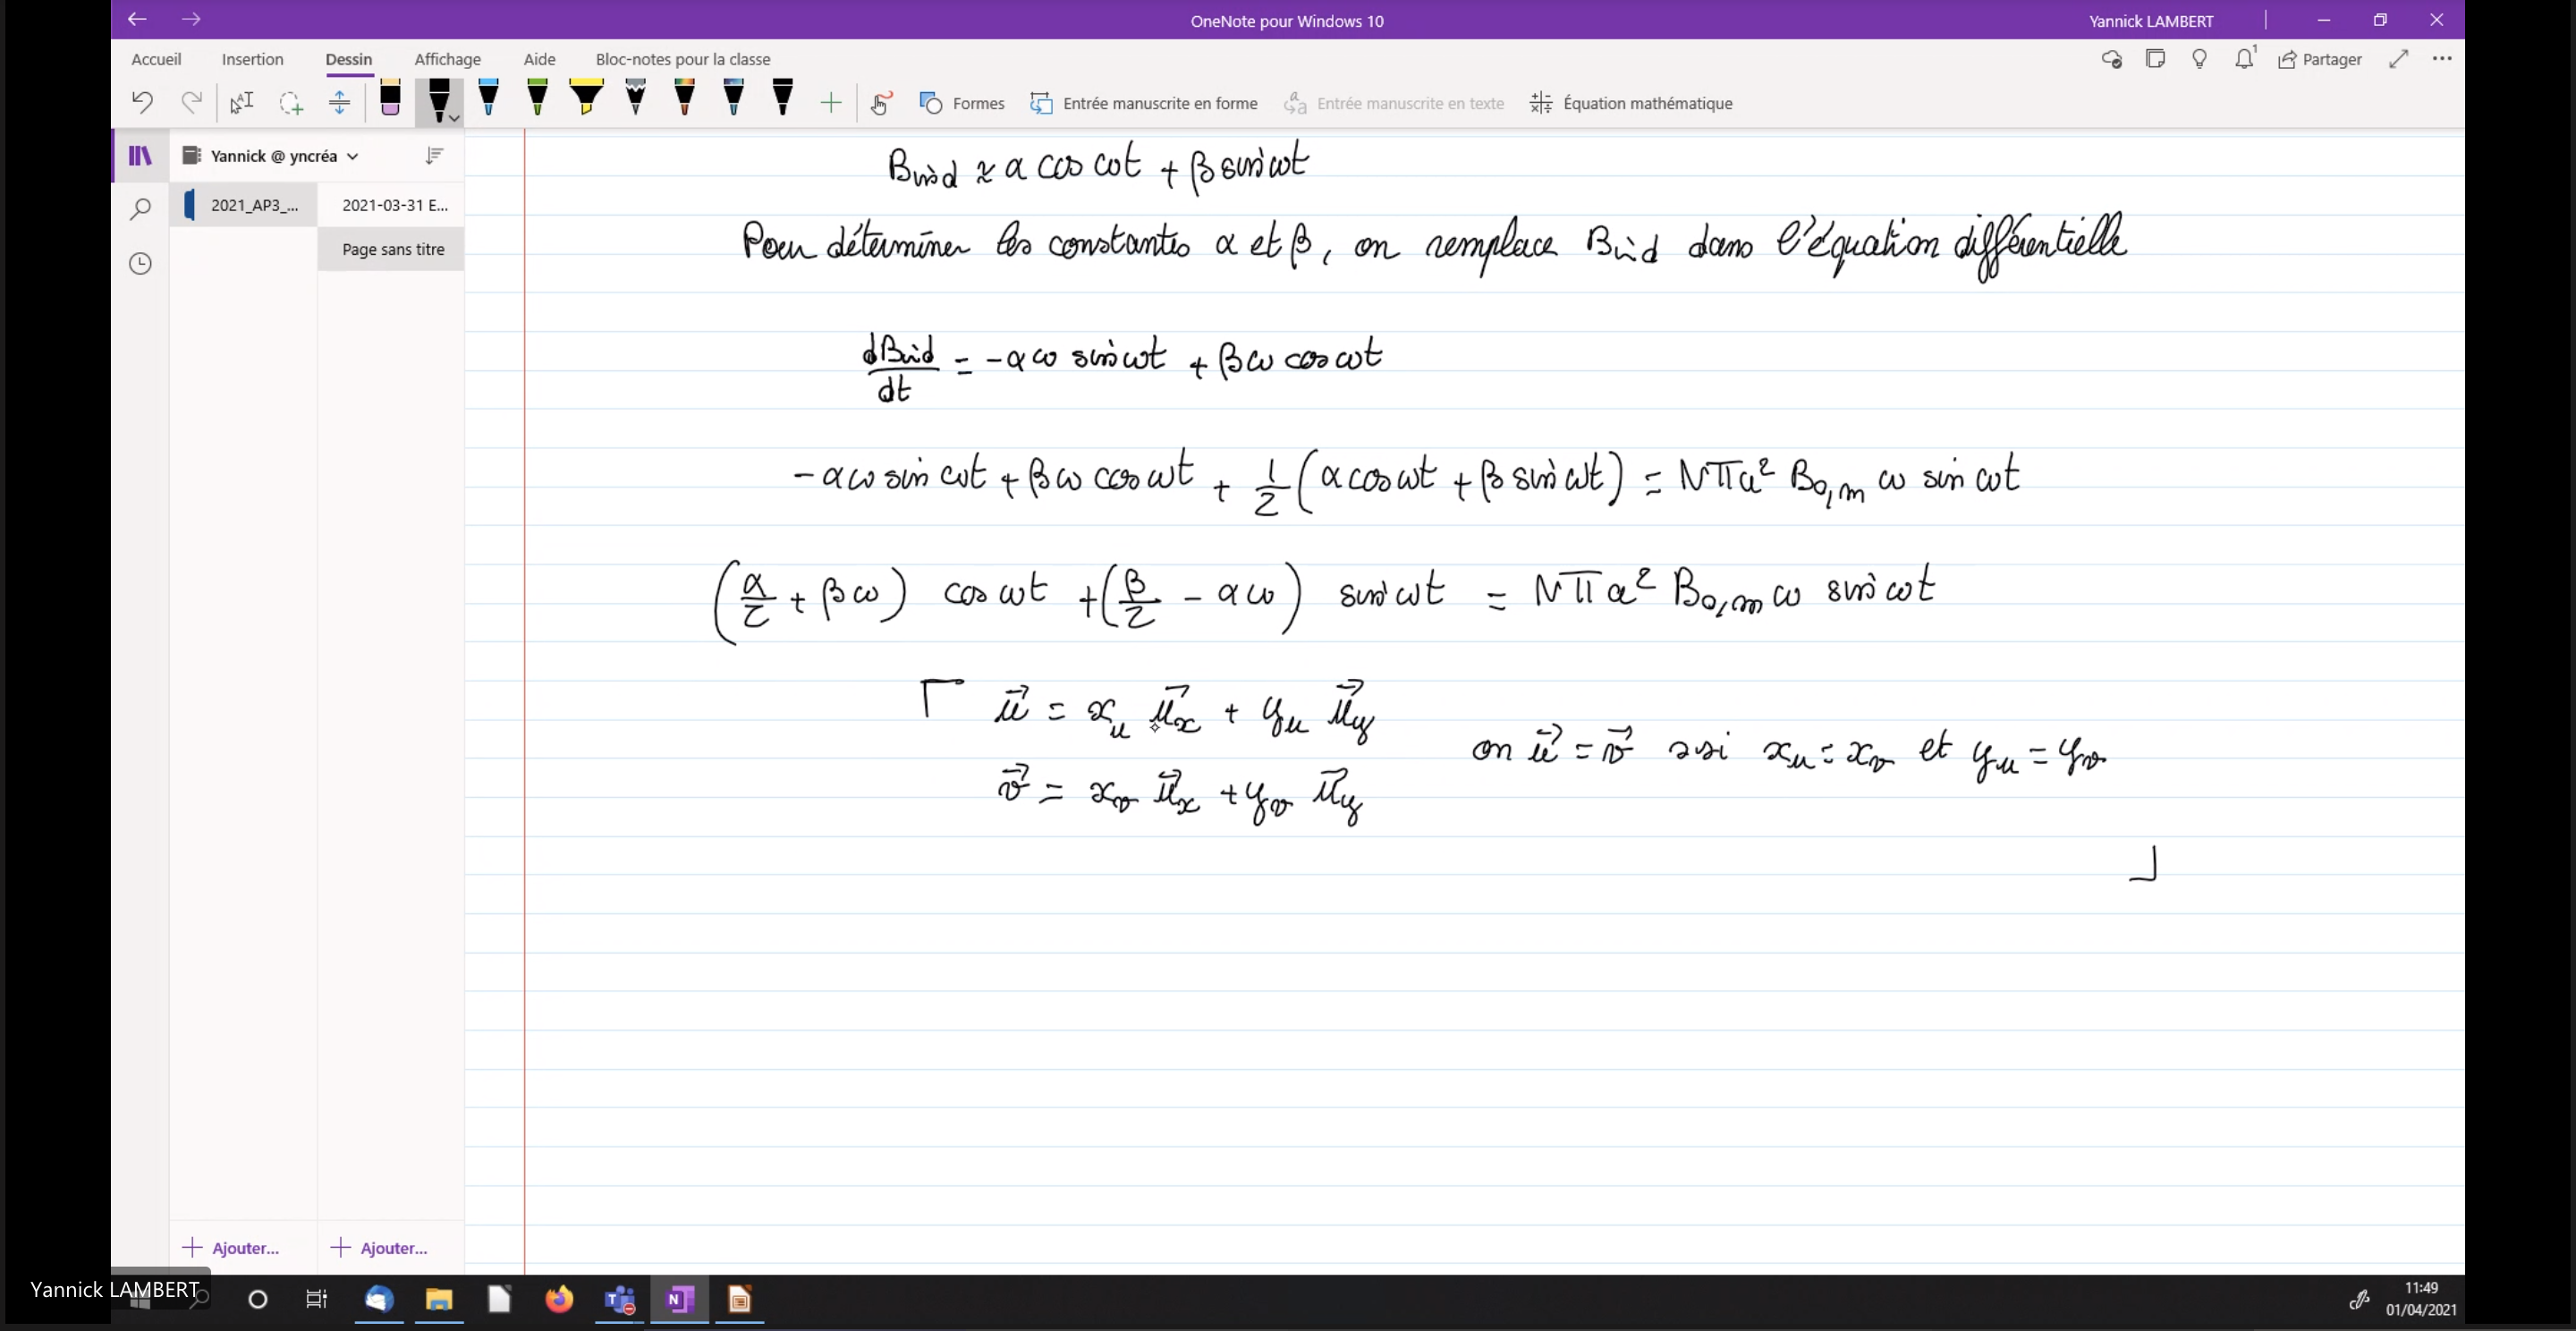 OneNote pour Windows 10
Yannick LAMBERT
Accueil Insertion Dessin Affichage Aide Bloc-notes pour la classe
1
Partager
Formes Entrée manuscrite en forme Entrée manuscrite en texte Équation mathématique
Yannick @ yncréa
2021_AP3_...
2021-03-31 E...
Page sans titre
Bind ≈ α cos ωt + β sin ωt
Pour déterminer les constantes α et β, on remplace Bind dans l'équation différentielle
dBind/dt = -αω sin ωt + βω cos ωt
-αω sin ωt + βω cos ωt + 1/2 (α cos ωt + β sin ωt) = Nπa² B0,m ω sin ωt
(α/2 + βω) cos ωt + (β/2 - αω) sin ωt = Nπa² B0,m ω sin ωt
u⃗ = xu u⃗x + yu u⃗y
on u⃗ = v⃗ ssi xu = xv et yu = yv
v⃗ = xv u⃗x + yv u⃗y
Ajouter...
Ajouter...
Yannick LAMBERT
11:49
01/04/2021